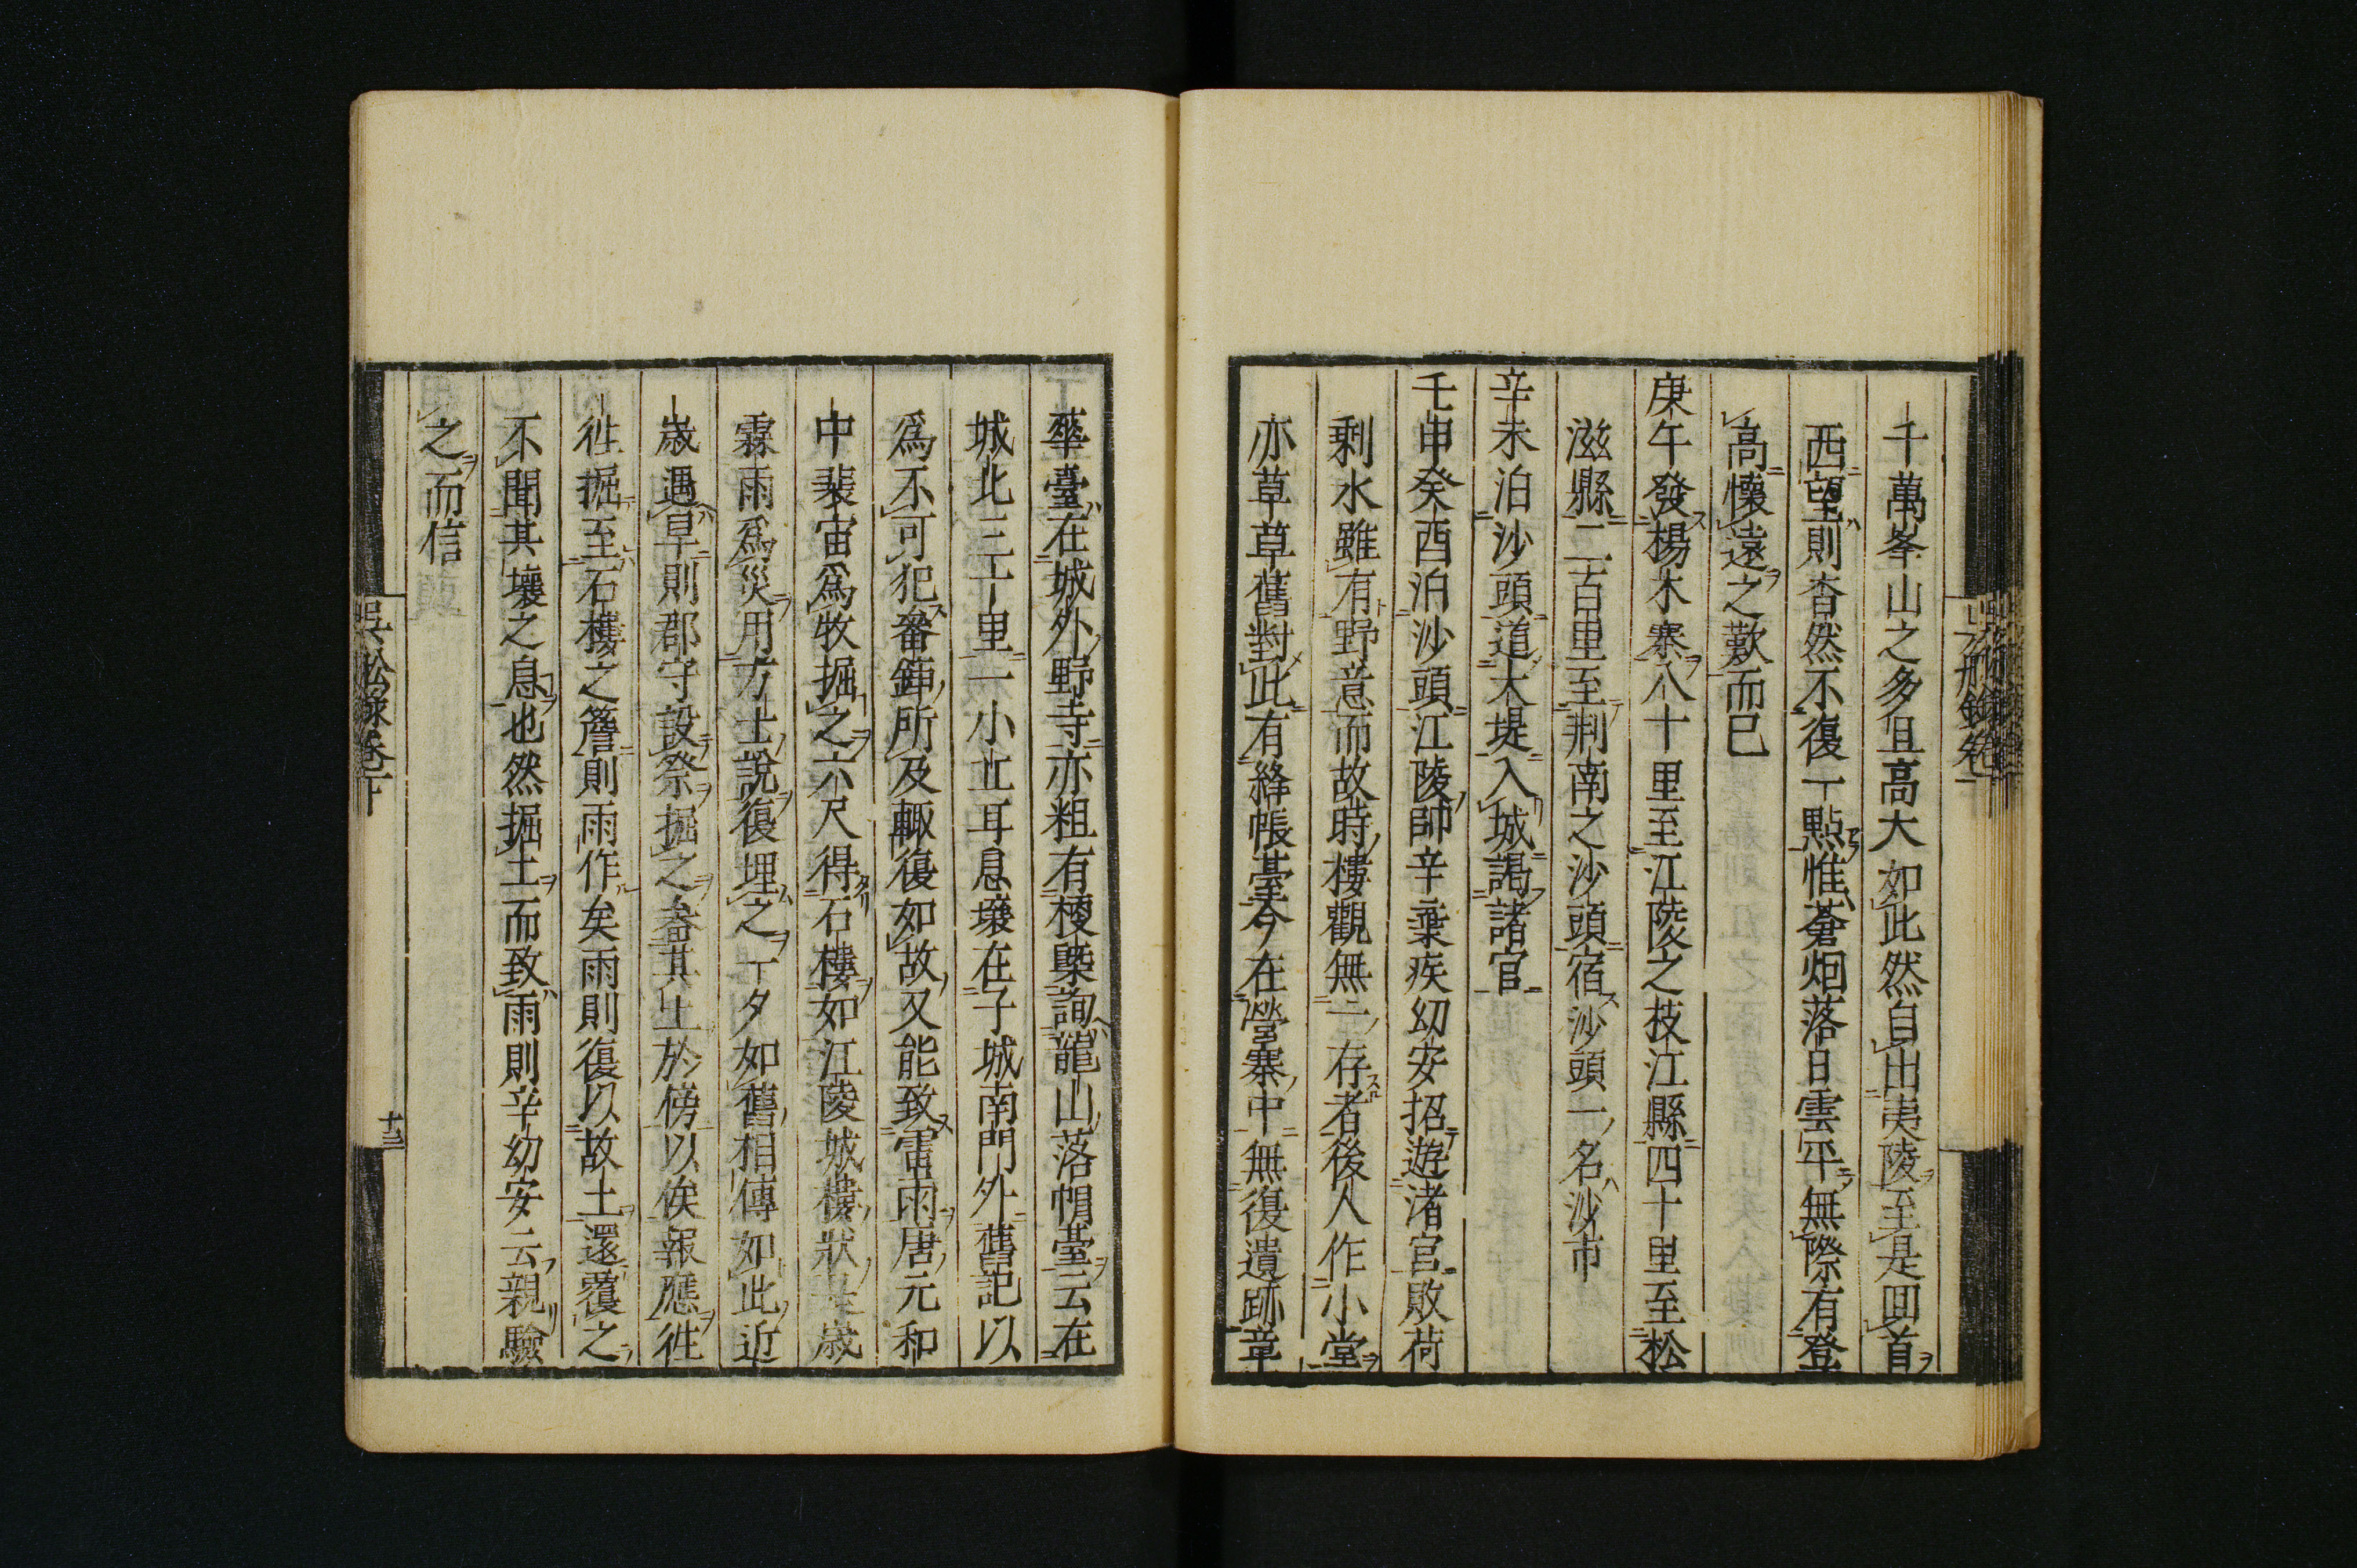 千萬峯山之多且高大如此然自出夷陵至是囬首
西望則杳然不復一點惟蒼烟落日雲平無際有登
高懷遠之歎而已
庚午發楊木寨八十里至江陵之枝江縣四十里至松
滋縣二百里至荆南之沙頭宿沙頭一名沙市
辛未泊沙頭道大堤入城謁諸官
壬申癸酉泊沙頭江陵帥辛棄疾幼安招遊渚宮敗荷
剩水雖有野意而故時樓觀無一存者後人作小堂
亦草草舊對此有絳帳臺今在營寨中無復遺跡章
華臺在城外野寺亦粗有梗槩詢龍山落帽臺云在
城北三十里一小丘耳息壤在子城南門外舊記以
爲不可犯畚鍤所及輙復如故又能致雷雨唐元和
中裴宙爲牧掘之六尺得石樓如江陵城樓狀是歳
霖雨爲災用方士說復埋之一夕如舊相傳如此近
歳遇旱則郡守設祭掘之畚其土於傍以俟報應徃
徃掘至石樓之簷則雨作矣雨則復以故土還覆之
不聞其壤之息也然掘土而致雨則辛幼安云親驗
之而信
吳船録卷下
十三